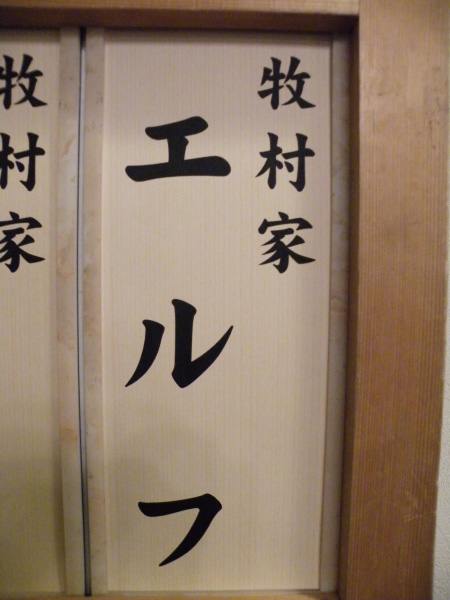 牧村家
エルフ
牧村家